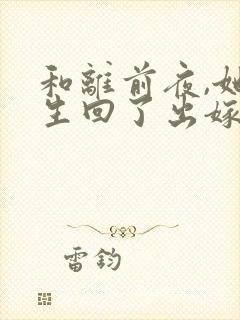 和離前夜,她
生回了出嫁
雷鈞